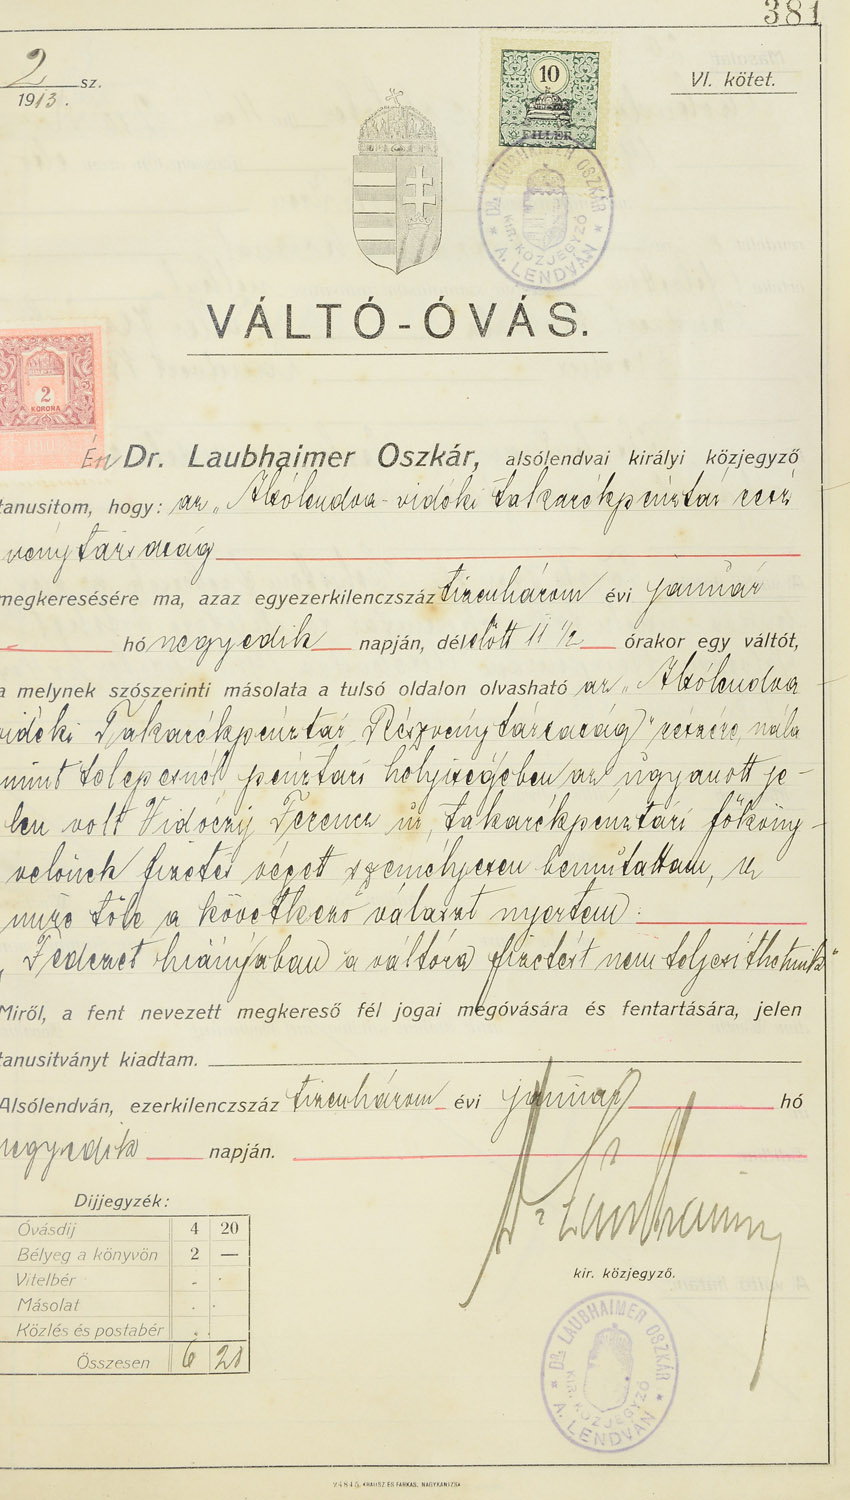 381
2 sz.
1913.
VI. kötet.
10
FILLÉR
DR. LAUBHAIMER OSZKÁR
KIR. KÖZJEGYZŐ
A. LENDVÁN
VÁLTÓ-ÓVÁS.
2
KORONA
Én Dr. Laubhaimer Oszkár, alsólendvai királyi közjegyző
tanusitom, hogy: az „Alsólendva-vidéki takarékpénztár rész
vénytársaság
megkeresésére ma, azaz egyezerkilenczszáz tizenhárom évi január
hó negyedik napján, délelőtt 11 1/2 órakor egy váltót,
a melynek szószerinti másolata a tulsó oldalon olvasható az „Alsólendva
vidéki Takarékpénztár Részvénytársaság" részére, nála
mint telepesnél pénztári helyiségében az ugyanott je-
len volt Vidóczy Ferencz úr, takarékpénztári főköny-
velőnek fizetés végett személyesen bemutattam,
mire tőle a következő választ nyertem:
„Fedezet hiányában a váltóra fizetést nem teljesíthetünk"
Miről, a fent nevezett megkereső fél jogai megóvására és fentartására, jelen
tanusitványt kiadtam.
Alsólendván, ezerkilenczszáz tizenhárom évi január hó
negyedik napján.
Dijjegyzék:
Óvásdij 4 20
Bélyeg a könyvön 2 —
Vitelbér - -
Másolat - -
Közlés és postabér - -
Összesen 6 20
Dr Laubhaimer
kir. közjegyző.
DR. LAUBHAIMER OSZKÁR
KIR. KÖZJEGYZŐ
A. LENDVÁN
KRAUSZ ÉS FARKAS, NAGYKANIZSA